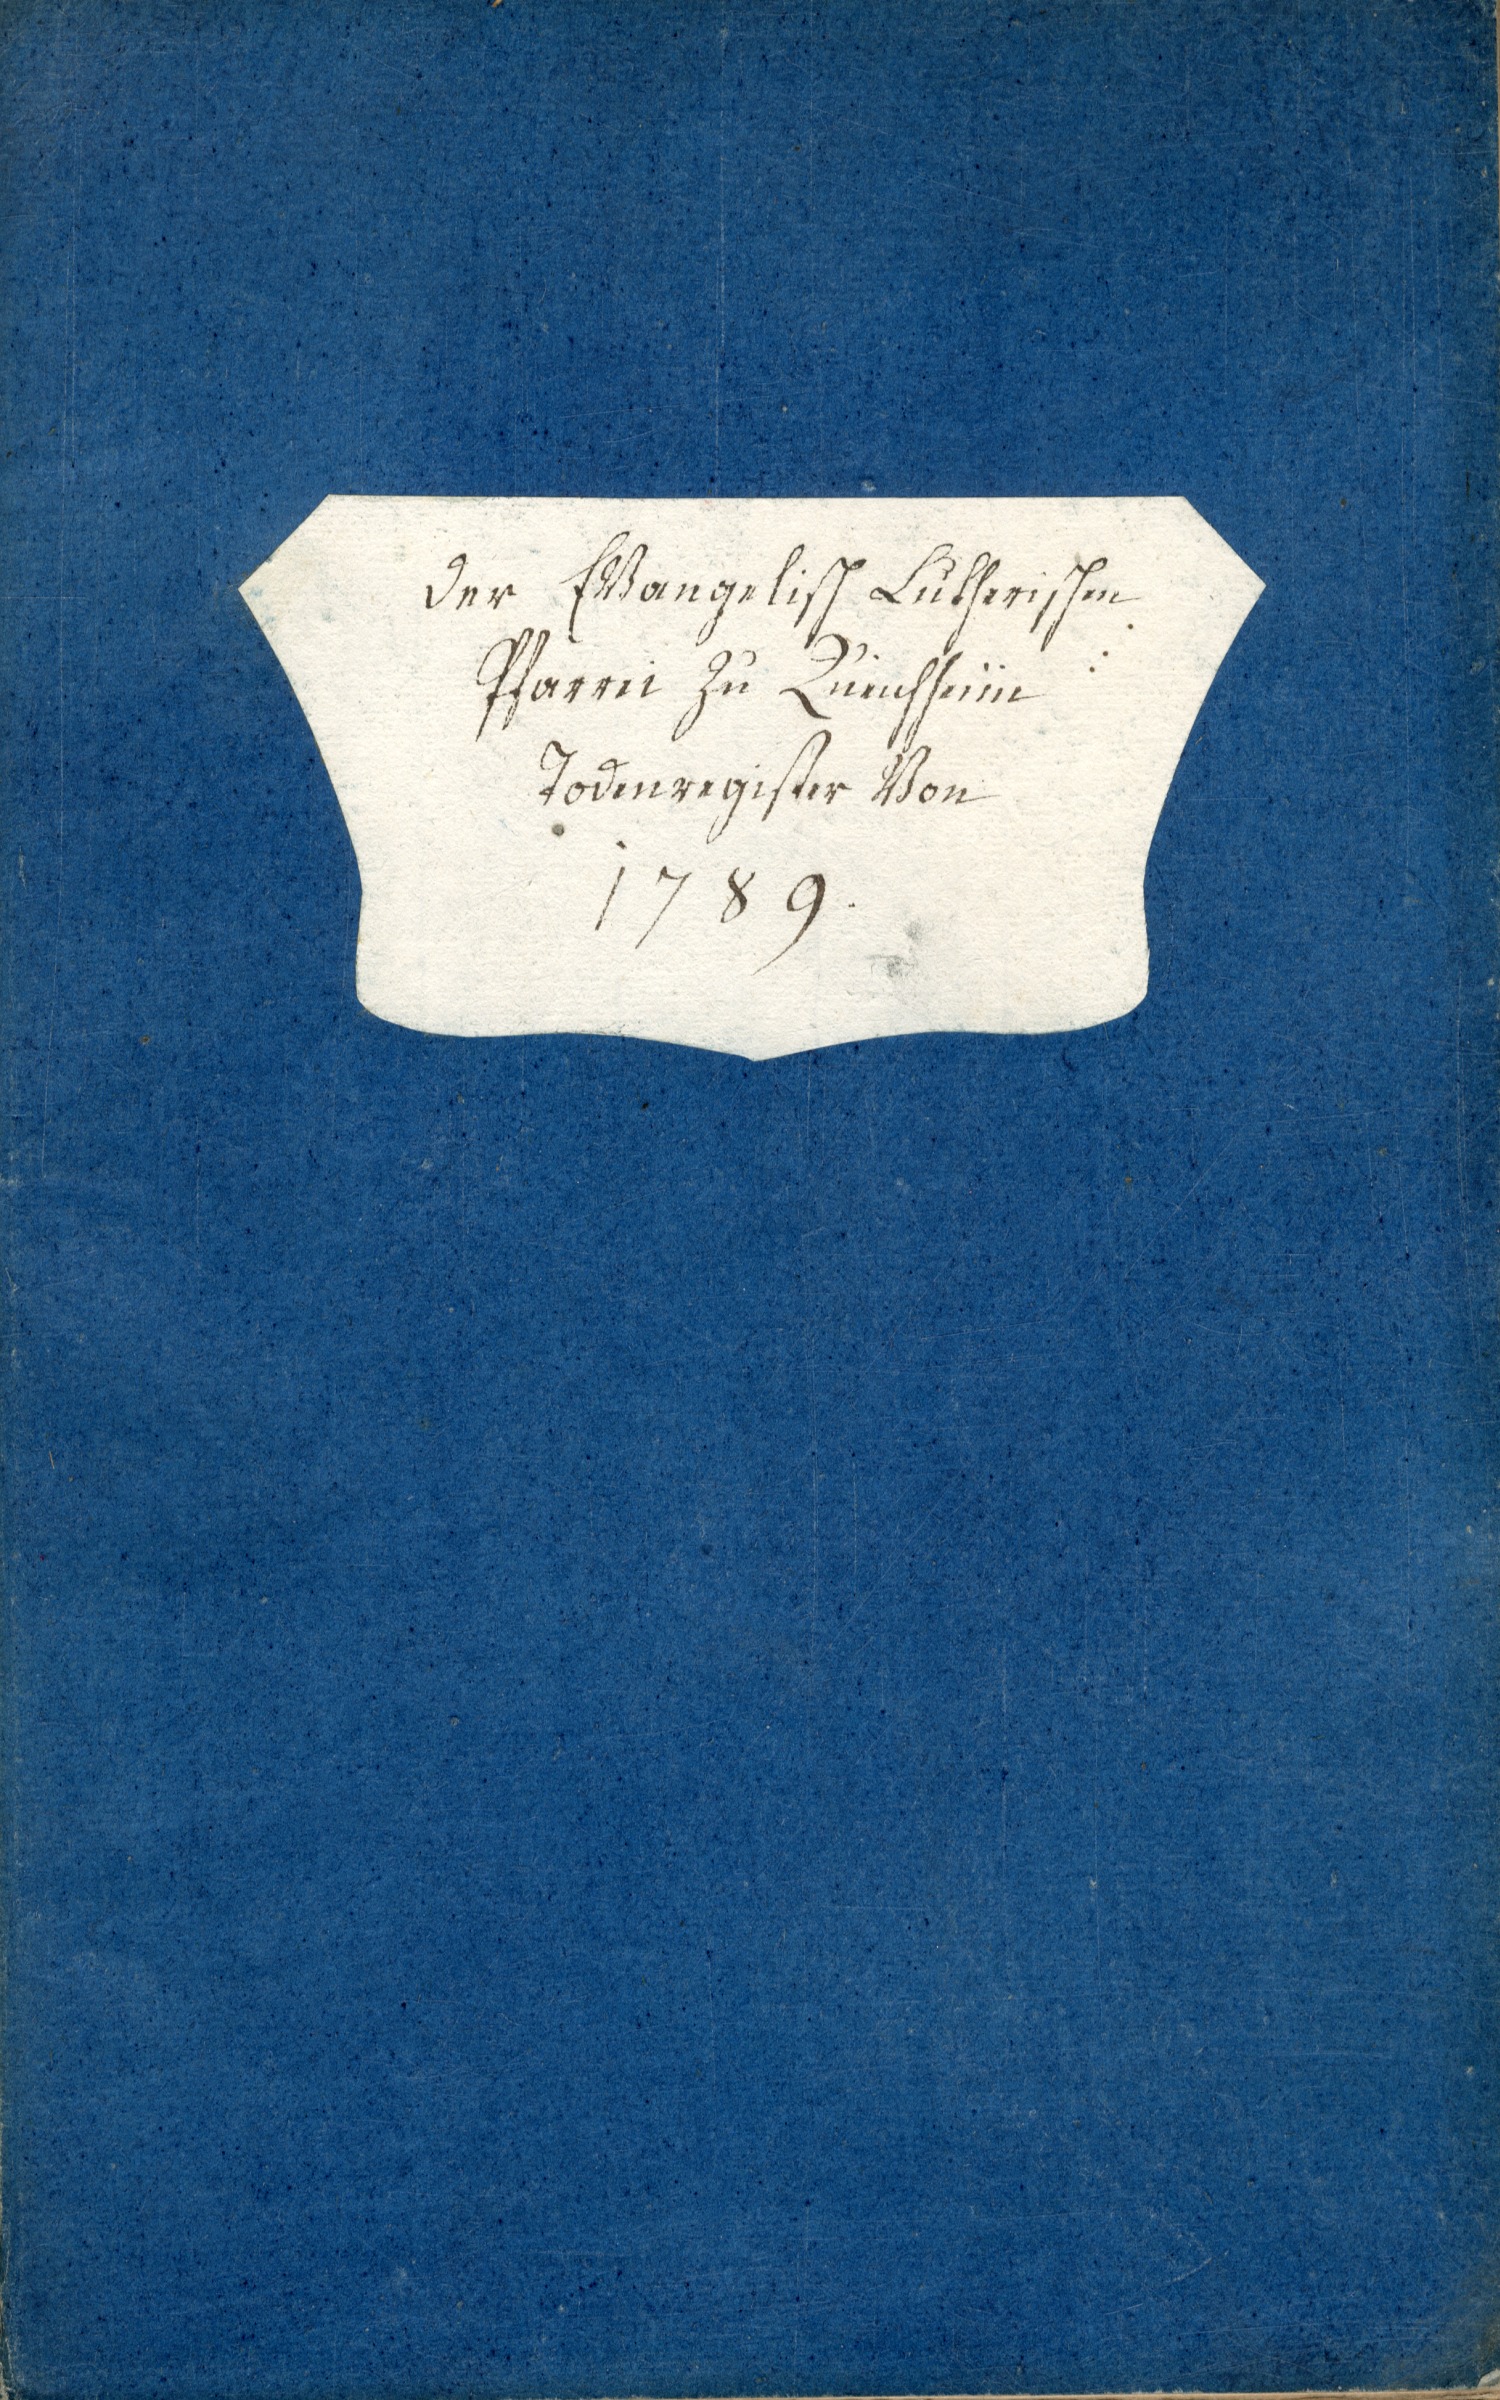 der EVangelisch Lutherischen
Pfarrei zu Queichheim
Todenregister Von
1789.